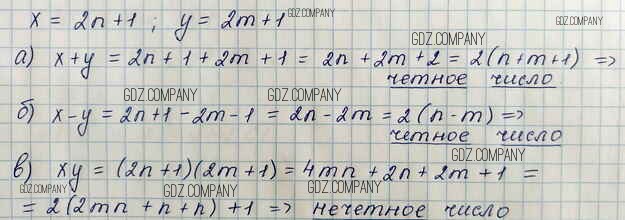 x = 2n+1 ; y = 2m+1 GDZ.COMPANY GDZ.COMPANY
GDZ.COMPANY
а) x+y = 2n+1+2m+1 = 2n+2m+2 = 2(n+m+1) =>
четное число
GDZ.COMPANY GDZ.COMPANY
б) x-y = 2n+1-2m-1 = 2n-2m = 2(n-m) =>
четное число
GDZ.COMPANY
в) xy = (2n+1)(2m+1) = 4mn + 2n + 2m + 1 =
GDZ.COMPANY GDZ.COMPANY GDZ.COMPANY
= 2(2mn + n + n) + 1 => нечетное число